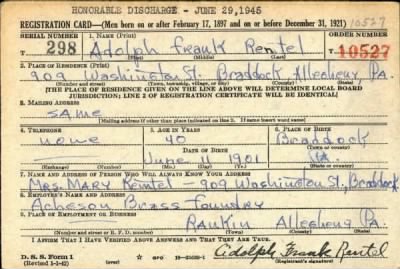 HONORABLE DISCHARGE - JUNE 29, 1945
REGISTRATION CARD—(Men born on or after February 17, 1897 and on or before December 31, 1921) 10527
SERIAL NUMBER 1. NAME (Print) ORDER NUMBER
T 298 Adolph Frank Rentel T 10527
(First) (Middle) (Last)
2. PLACE OF RESIDENCE (Print)
909 Washington St. Braddock Allegheny Pa.
(Number and street) (Town, township, village, or city) (County) (State)
[THE PLACE OF RESIDENCE GIVEN ON THE LINE ABOVE WILL DETERMINE LOCAL BOARD
JURISDICTION; LINE 2 OF REGISTRATION CERTIFICATE WILL BE IDENTICAL]
3. MAILING ADDRESS
same
[Mailing address if other than place indicated on line 2. If same insert word same]
4. TELEPHONE 5. AGE IN YEARS 6. PLACE OF BIRTH
none 40 Braddock
DATE OF BIRTH (Town or county)
June 11 1901 Pa.
(Exchange) (Number) (Mo.) (Day) (Yr.) (State or country)
7. NAME AND ADDRESS OF PERSON WHO WILL ALWAYS KNOW YOUR ADDRESS
Mrs. MARY Rentel - 909 Washington St., Braddock
8. EMPLOYER'S NAME AND ADDRESS
Acheson Brass Foundry
9. PLACE OF EMPLOYMENT OR BUSINESS
Rankin Allegheny Pa.
(Number and street or R. F. D. number) (Town) (County) (State)
I AFFIRM THAT I HAVE VERIFIED ABOVE ANSWERS AND THAT THEY ARE TRUE.
D. S. S. Form 1
(Revised 1-1-42) GPO Adolph Frank Rentel
(Registrant's signature)